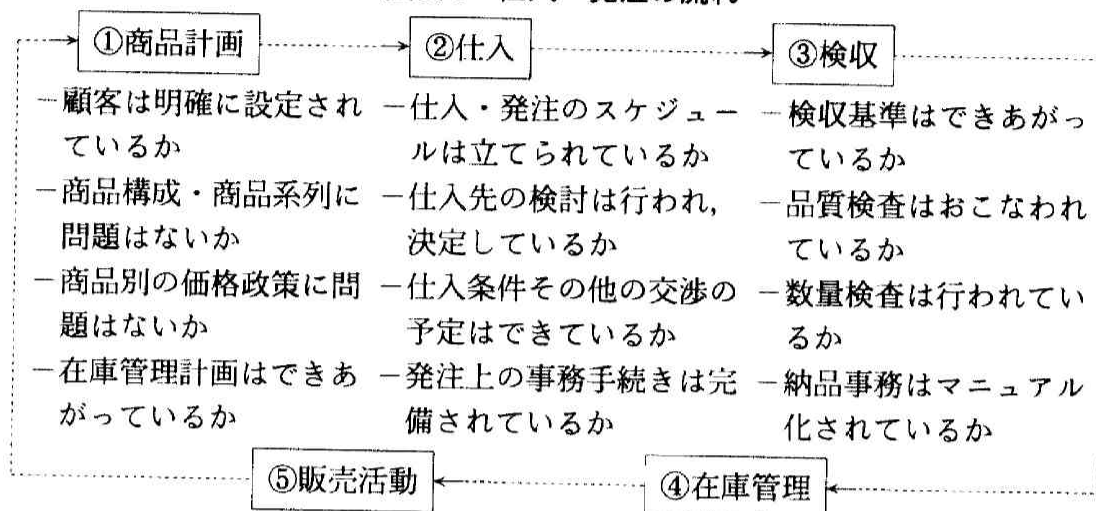 ①商品計画
②仕入
③検収
－顧客は明確に設定され
ているか
－商品構成・商品系列に
問題はないか
－商品別の価格政策に問
題はないか
－在庫管理計画はできあ
がっているか
－仕入・発注のスケジュー
ルは立てられているか
－仕入先の検討は行われ,
決定しているか
－仕入条件その他の交渉の
予定はできているか
－発注上の事務手続きは完
備されているか
－検収基準はできあがっ
ているか
－品質検査はおこなわれ
ているか
－数量検査は行われてい
るか
－納品事務はマニュアル
化されているか
⑤販売活動
④在庫管理